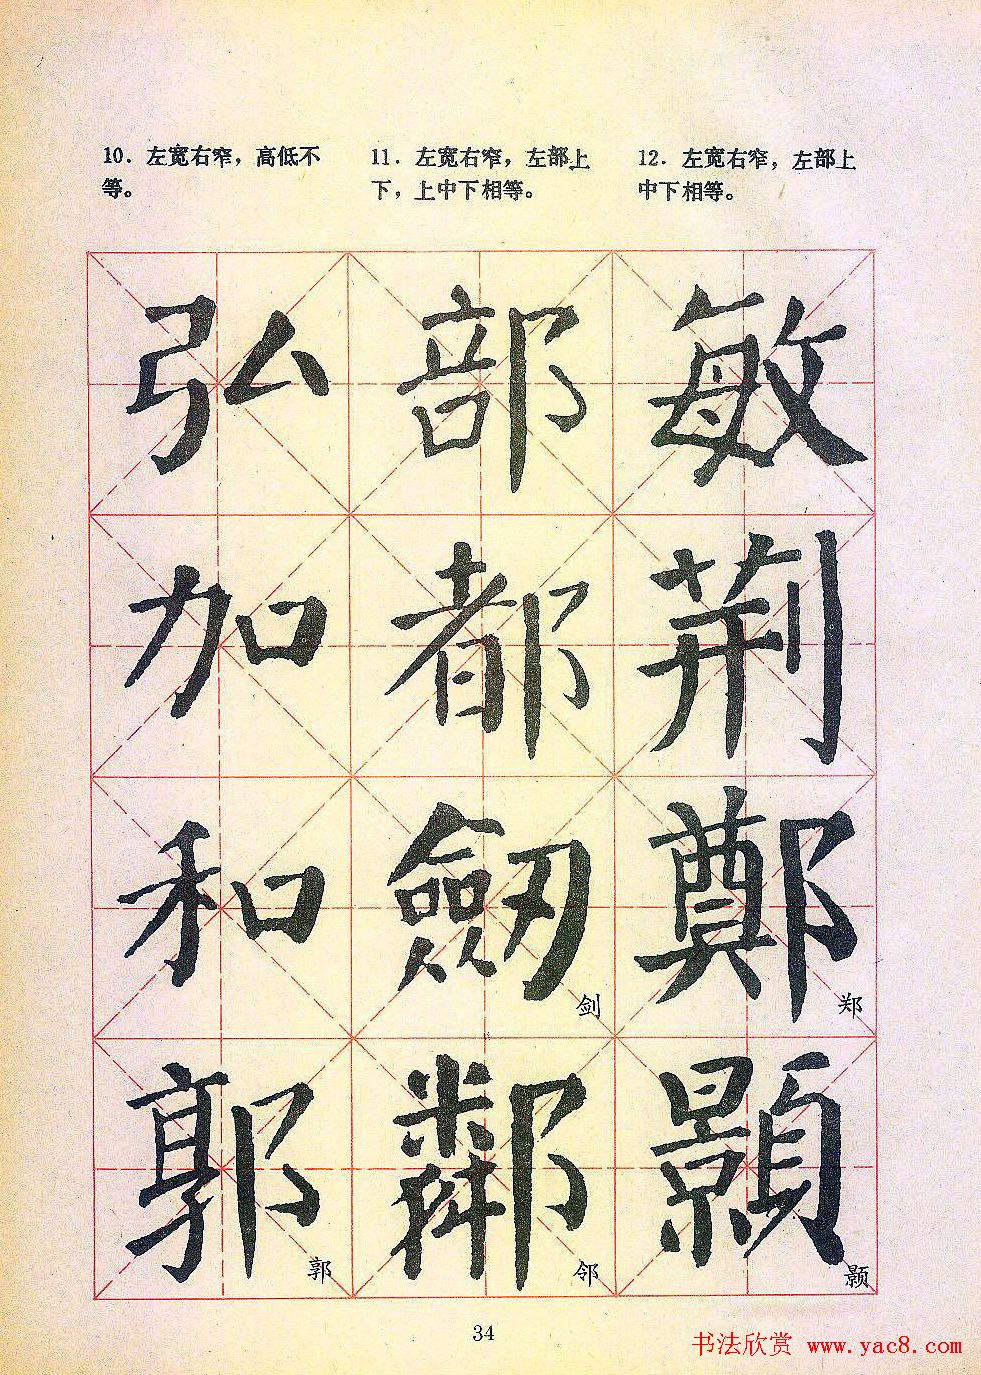 10．左宽右窄，高低不
等。
11．左宽右窄，左部上
下，上中下相等。
12．左宽右窄，左部上
中下相等。
弘 部 敏
加 都 荆
和 劒 鄭
剑 郑
郭 鄰 顥
郭 邻 颢
34
书法欣赏 www.yac8.com